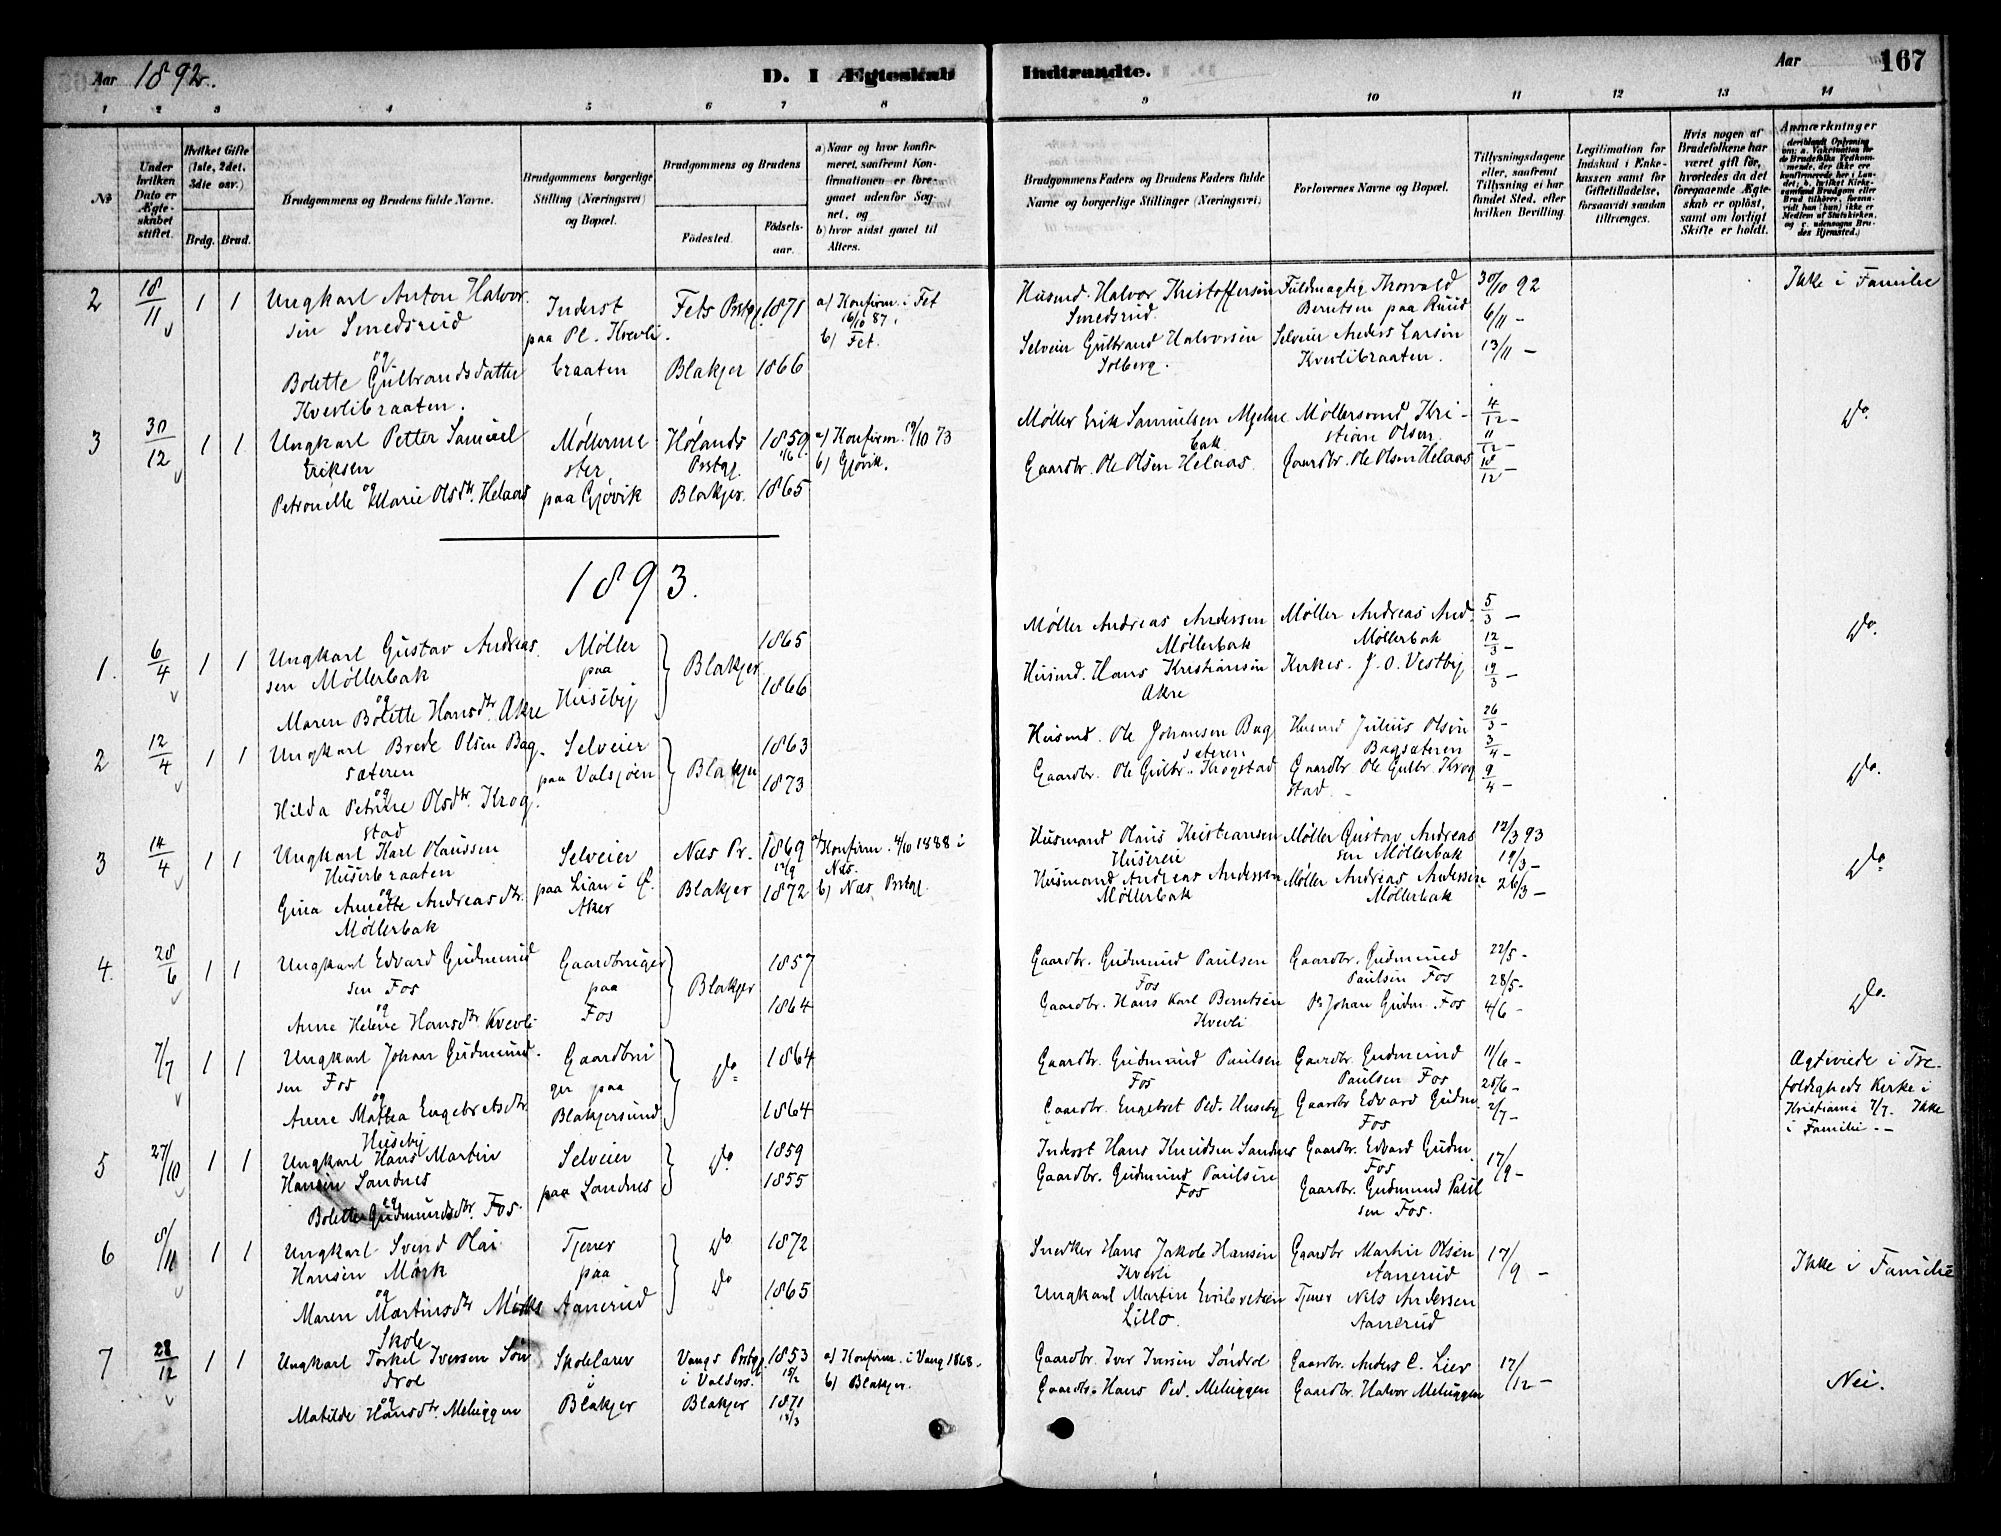 Aar 1892.
D. I Ægteskab
Indtraadte.
Aar 167
1 2 3 4 5 6 7 8 9 10 11 12 13 14
№
Under hvilken Dato er Ægteskabet stiftet.
Hvilket Gifte (1ste, 2det, 3die osv.)
Brdg. Brud.
Brudgommens og Brudens fulde Navne.
Brudgommens borgerlige Stilling (Næringsvei) og Bopæl.
Brudgommens og Brudens
Fødested. Fødselsaar.
a) Naar og hvor konfirmeret, saafremt Konfirmationen er foregaaet udenfor Sognet, og
b) hvor sidst gaaet til Alters.
Brudgommens Faders og Brudens Faders fulde Navne og borgerlige Stillinger (Næringsvei)
Forlovernes Navne og Bopæl.
Tillysningsdagene eller, saafremt Tillysning ei har fundet Sted, efter hvilken Bevilling.
Legitimation for Indskud i Enkekassen samt for Giftetilladelse, forsaavidt saadan tiltrænges.
Hvis nogen af Brudefolkene har været gift før, hvorledes da det foregaaende Ægteskab er opløst, samt om lovligt Skifte er holdt.
Anmærkninger
2 18/11 1 1 Ungkarl Anton Halvorsen Smedsrud
og
Bolette Gulbrandsdatter Kverlibraaten.
Inderst paa Pl. Kverlibraaten
Fets Prstgj. 1871
Blakjer 1866
a) Konfirm. i Fet 16/10 87.
b) Fet.
Husmd. Halvor Kristoffersen Smedsrud
Selveier Gulbrand Halvorsen Solberg.
Fuldmægtig Thorvald Berntsen paa Ruud
Selveier Anders Larsen Kverlibraaten.
30/10 92
6/11 -
13/11 -
Ikke i Familie
3 30/12 1 1 Ungkarl Petter Samuel Eriksen
og
Petronelle Marie Olsdtr. Helaas
Møllermester paa Gjøvik
Hølands Prstgj. 1859
Blakjer. 1865
a) Konfirm. 19/10 73
b) Gjøvik.
Møller Erik Samuelsen
Gaardbr. Ole Olsen Helaas.
Møllersvend Kristian Olsen
Gaardbr. Ole Olsen Helaas
4/12 -
11/12 -
18/12 -
Do.
1893.
1. 6/4 1 1 Ungkarl Gustav Andreassen Møllerbak
og
Maren Bolette Hansdtr. Akre
Møller paa Huseby
Blakjer 1865
1866
Møller Andreas Andersen Møllerbak
Husmd. Hans Kristiansen Akre
Møller Andreas And. Møllerbak
Kirkes. J. O. Vestby
5/3 -
12/3 -
19/3 -
Do.
2 12/4 1 1 Ungkarl Brede Olsen Bagsæteren
og
Hilda Petrine Olsdtr. Krogstad
Selveier paa Valsjøen
Blakjer 1863
1873
Husmd. Ole Johansen Bagsæteren
Gaardbr. Ole Gulbr. Krogstad
Husmd Julius Olsen Bagsæteren
Gaardbr Ole Gulbr Krogstad. -
26/3 -
3/4 -
9/4 -
Do.
3 14/4 1 1 Ungkarl Karl Olaussen Huserbraaten
og
Gina Annette Andreasdtr. Møllerbak
Selveier paa Lian i Ø. Aker
Næs Pr. 1869
Blakjer 1872
a) Konfirm. 4/10 1888 i Næs.
b) Næs Prstgj.
Husmand Olaus Kristiansen Husereie
Husmand Andreas Andersen Møllerbak
Møller Gustav Andreassen Møllerbak
Møller Andreas Andersen Møllerbak
12/3 93
19/3 -
26/3 -
Do.
4. 28/6 1 1 Ungkarl Edvard Gudmundsen Fos
og
Anne Helene Hansdtr. Kverli
Gaardbruger paa Fos
Blakjer 1857
1864
Gaardbr. Gudmund Paulsen Fos
Gaardbr. Hans Karl Berntsen Kverli
Gaardbr. Gudmund Paulsen Fos
Do Johan Gudm. Fos
22/5 -
28/5 -
4/6 -
Do.
7/7 1 1 Ungkarl Johan Gudmundsen Fos
og
Anne Mathea Engebretsdtr. Huseby
Gaardbruger paa Blakjersund
Do. 1864
1864
Gaardbr. Gudmund Paulsen Fos
Gaardbr. Engebret Ped. Huseby
Gaardbr. Gudmund Paulsen Fos
Gaardbr Edvard Gudm. Fos
11/6 -
25/6 -
2/7 -
Ægtviede i Trefoldigheds Kirke i Kristiania 7/7. Ikke i Familie. -
5 27/10 1 1 Ungkarl Hans Martin Hansen Sandnes
og
Bolette Gudmundsdtr. Fos.
Selveier paa Sandnes
Do. 1859
1855
Inderst Hans Knudsen Sandnes
Gaardbr. Gudmund Paulsen Fos
Gaardbr. Edvard Gudm. Fos
Gaardbr. Gudmund Paulsen Fos.
17/9 -
6 8/11 1 1 Ungkarl Svend Olai Hansen Mørk
og
Maren Martinsdtr
Tjener paa Aanerud
Do 1872
Do 1865
Snedker Hans Jakob Hansen Kverli
Ungkarl Martin Lillo.
Gaardbr Martin Olsen Aanerud
Tjener Nils Andersen Aanerud
17/9 -
Ikke i Familie
7 28/12 1 1 Ungkarl Torkel Iversen Søndrol
og
Matilde Hansdtr. Mehuggen
Skolelærer i Blakjer
Vangs Prstgj. i Valders. 1853 15/2
Blakjer 1871 13/3
a) Konfirm. i Vang 1868.
b) Blakjer.
Gaardbr. Iver Iversen Søndrol
Gaardbr. Hans Ped. Mehuggen
Gaardbr. Anders C. Lier
Gaardbr. Halvor Mehuggen
17/12 -
Nei.